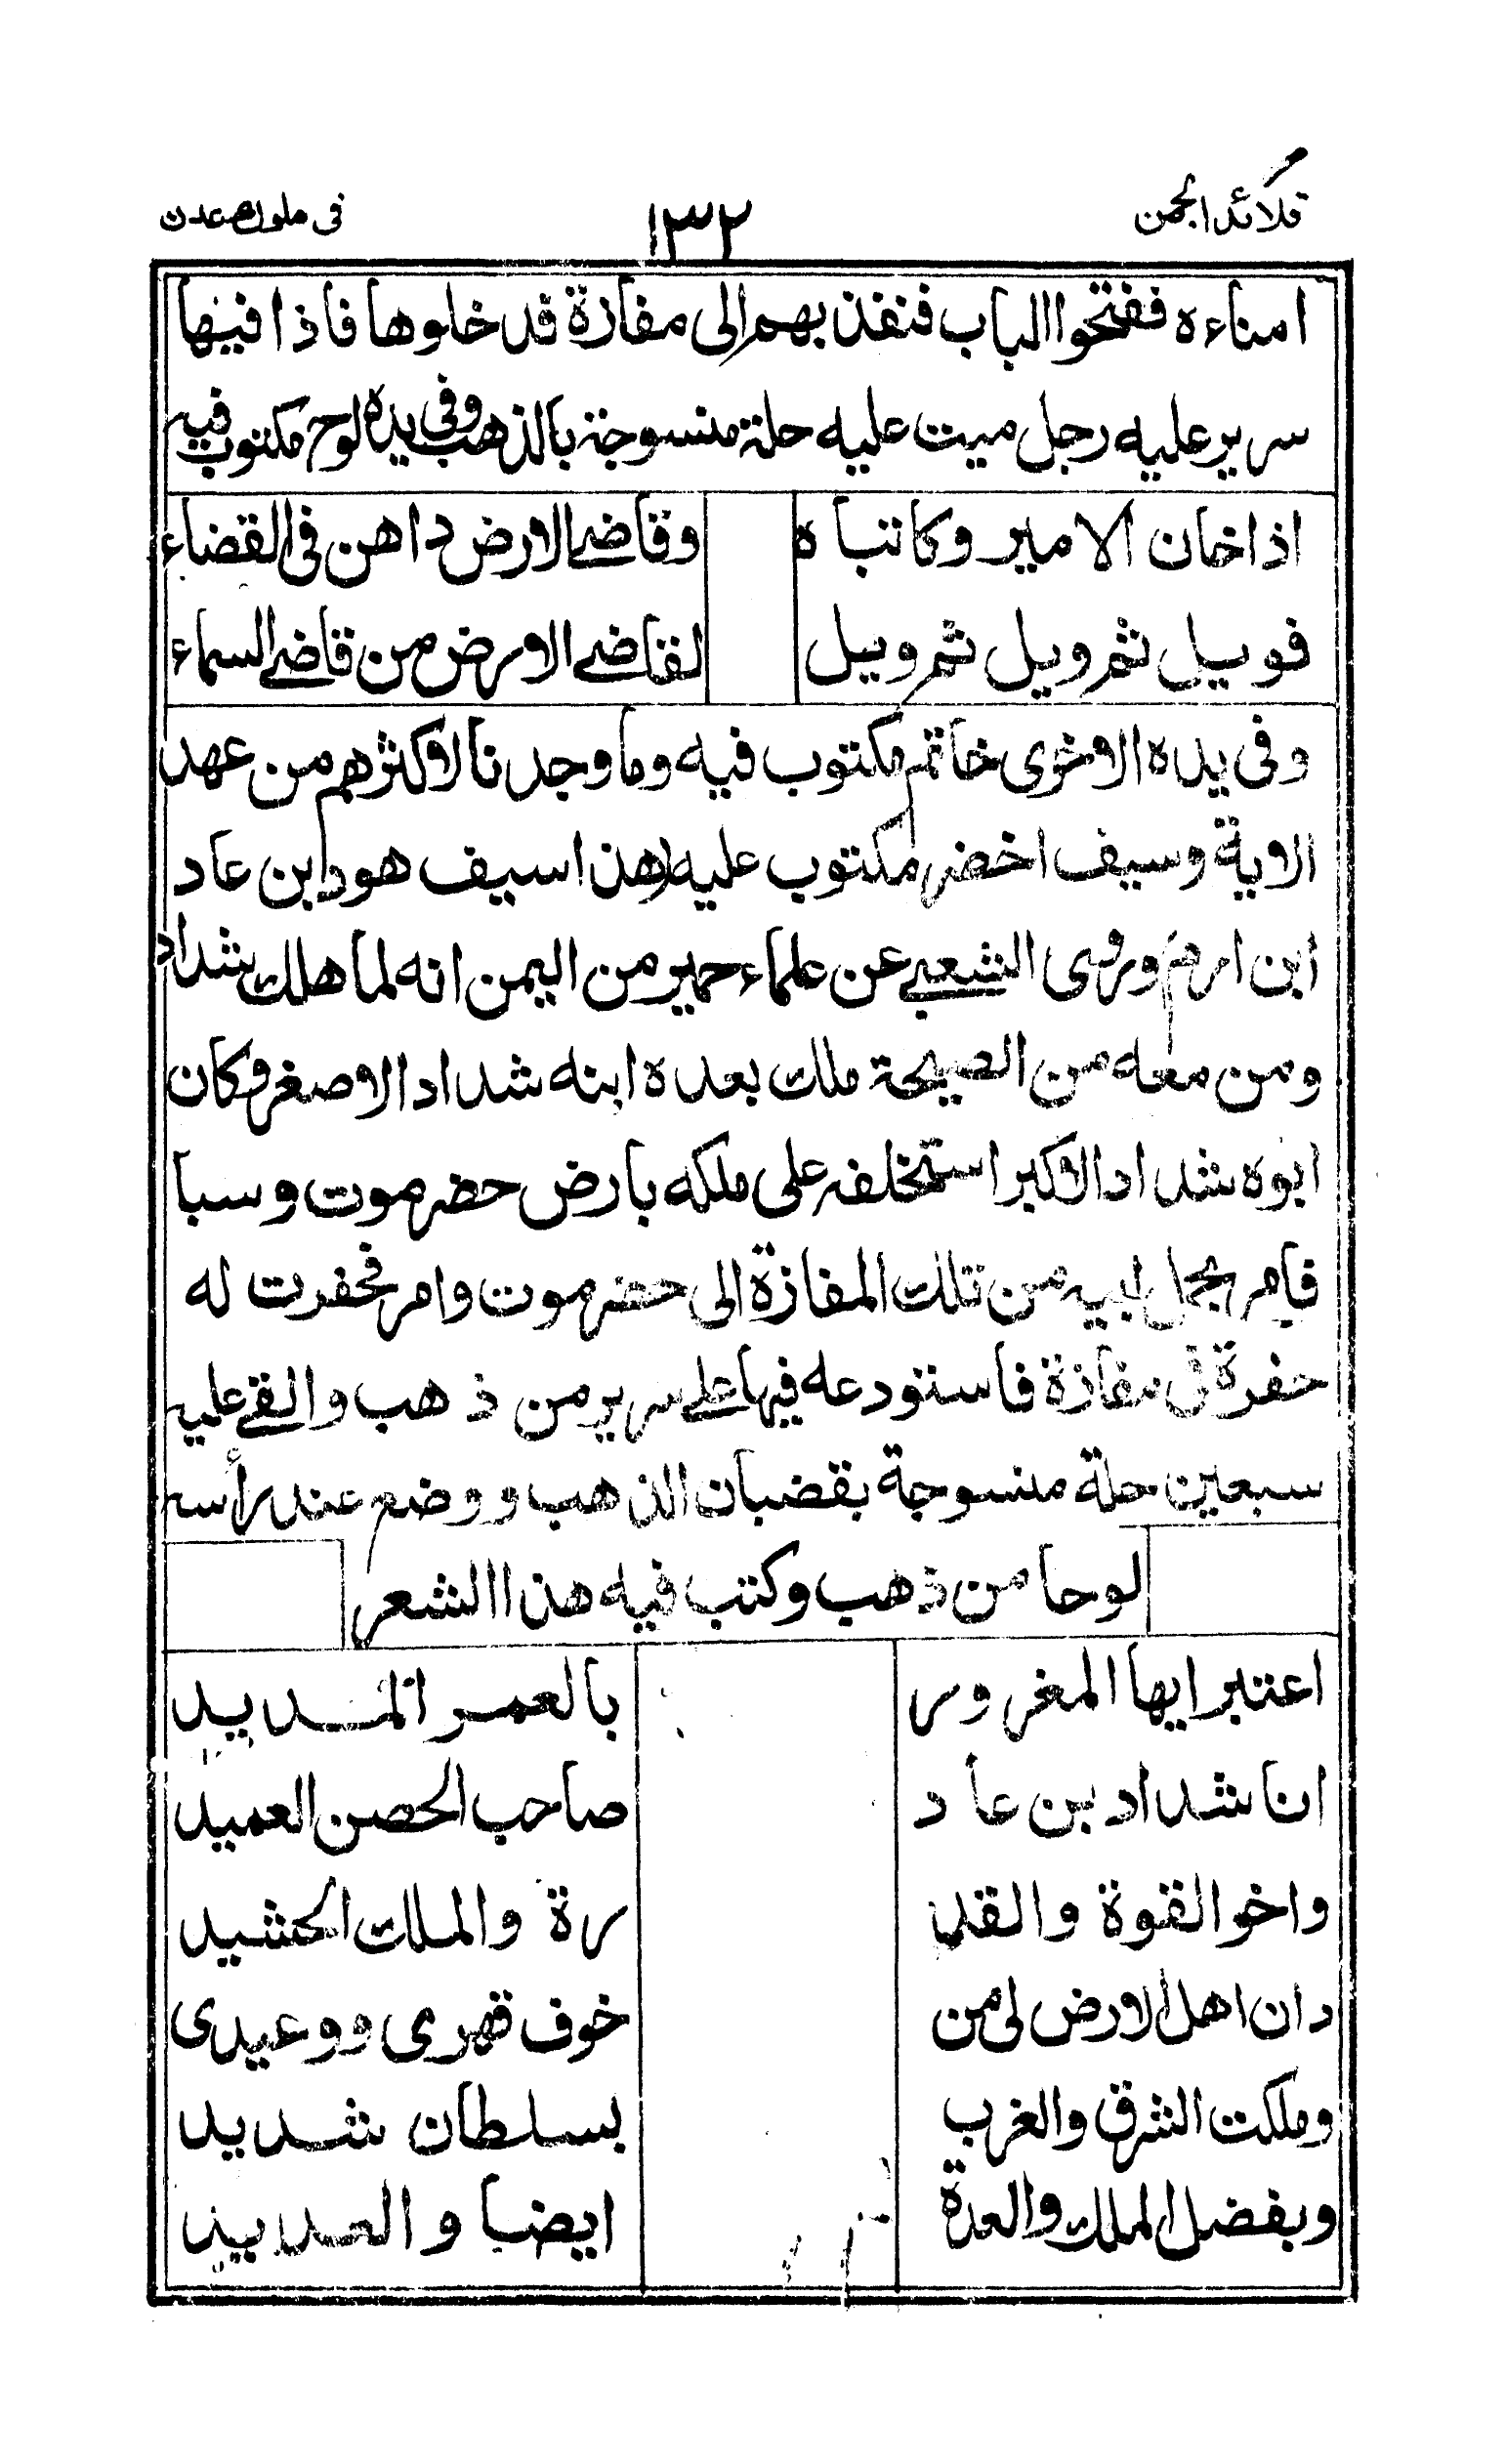 قلائد الجمن ١٣٢ فى ملوك عدن
امناءه ففتحوا الباب فنفذ بهم الى مفازة قد خلوها فاذا فيها
سرير عليه رجل ميت عليه حلة منسوجة بالذهب وفى يده لوح مكتوب فيه
اذا خان الامير وكاتباه وقاضي الارض داهن فى القضاء
فويل ثم ويل ثم ويل لقاضي الارض من قاضي السماء
وفى يده الاخرى خاتم مكتوب فيه وما وجدنا لاكثرهم من عهد
الاية وسيف اخضر مكتوب عليه هذا سيف هود ابن عاد
ابن ارم وروى الشعبي عن علماء حمير من اليمن انه لما هلك شداد
ومن معه من الصيحة ملك بعده ابنه شداد الاصغر وكان
ابوه شداد الاكبر استخلفه على ملكه بارض حضرموت وسبا
فامر بحمل ابيه من تلك المفازة الى حضرموت وامر فحفرت له
حفرة فى مفازة فاستودعه فيها علي سرير من ذهب والقي عليه
سبعين حلة منسوجة بقضبان الذهب ووضع عند رأسه
لوحا من ذهب وكتب فيه هذا الشعر
اعتبر ايها المغرور بالعمر المديد
انا شداد بن عاد صاحب الحصن العميد
واخو القوة والقد رة والملك الحشيد
دان اهل الارض لى من خوف قهرى ووعيدى
وملكت الشرق والغرب بسلطان شديد
وبفضل الملك والعدة ايضا والعديد